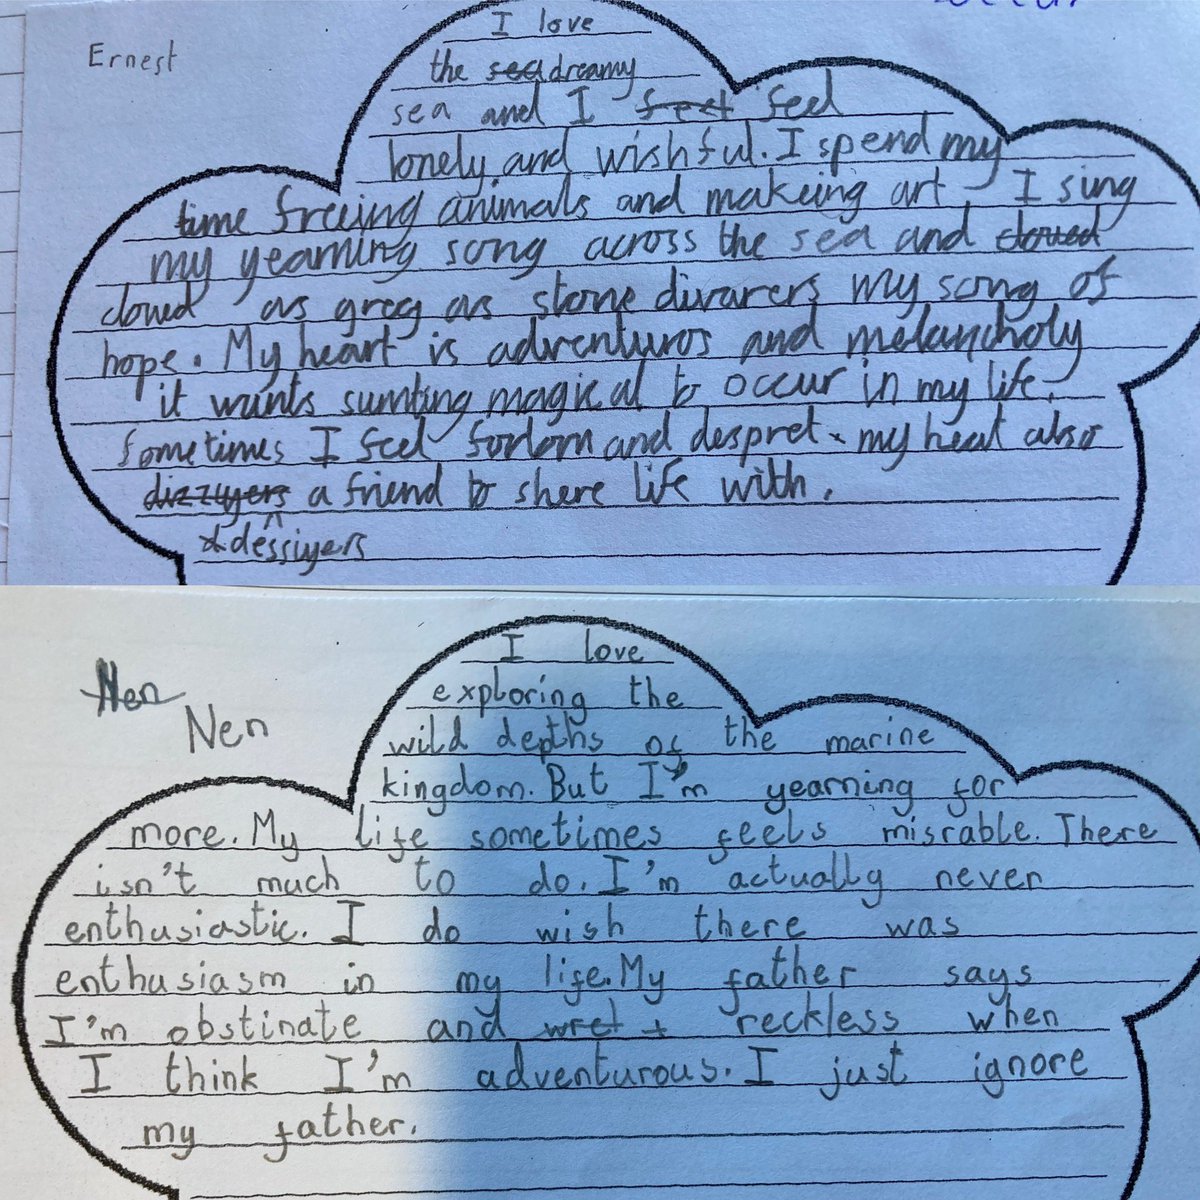 Ernest
I love
the sea dreamy
sea and I feel feel
lonely and wishful. I spend my
time freeing animals and makeing art I sing
my yearning song across the sea and cloued
cloued as grey as stone divarers my song of
hope. My heart is adventuros and melancholy
it wants sumting magical to occur in my life.
Sometimes I feel forlorn and despret. my heat also
dizzuyers a friend to shere life with.
dessiyers
Nen
Nen
I love
exploring the
wild depths of the marine
kingdom. But I'm yearning for
more. My life sometimes feels misrable. There
isn't much to do. I'm actually never
enthusiastic. I do wish there was
enthusiasm in my life. My father says
I'm obstinate and wret reckless when
I think I'm adventurous. I just ignore
my father.